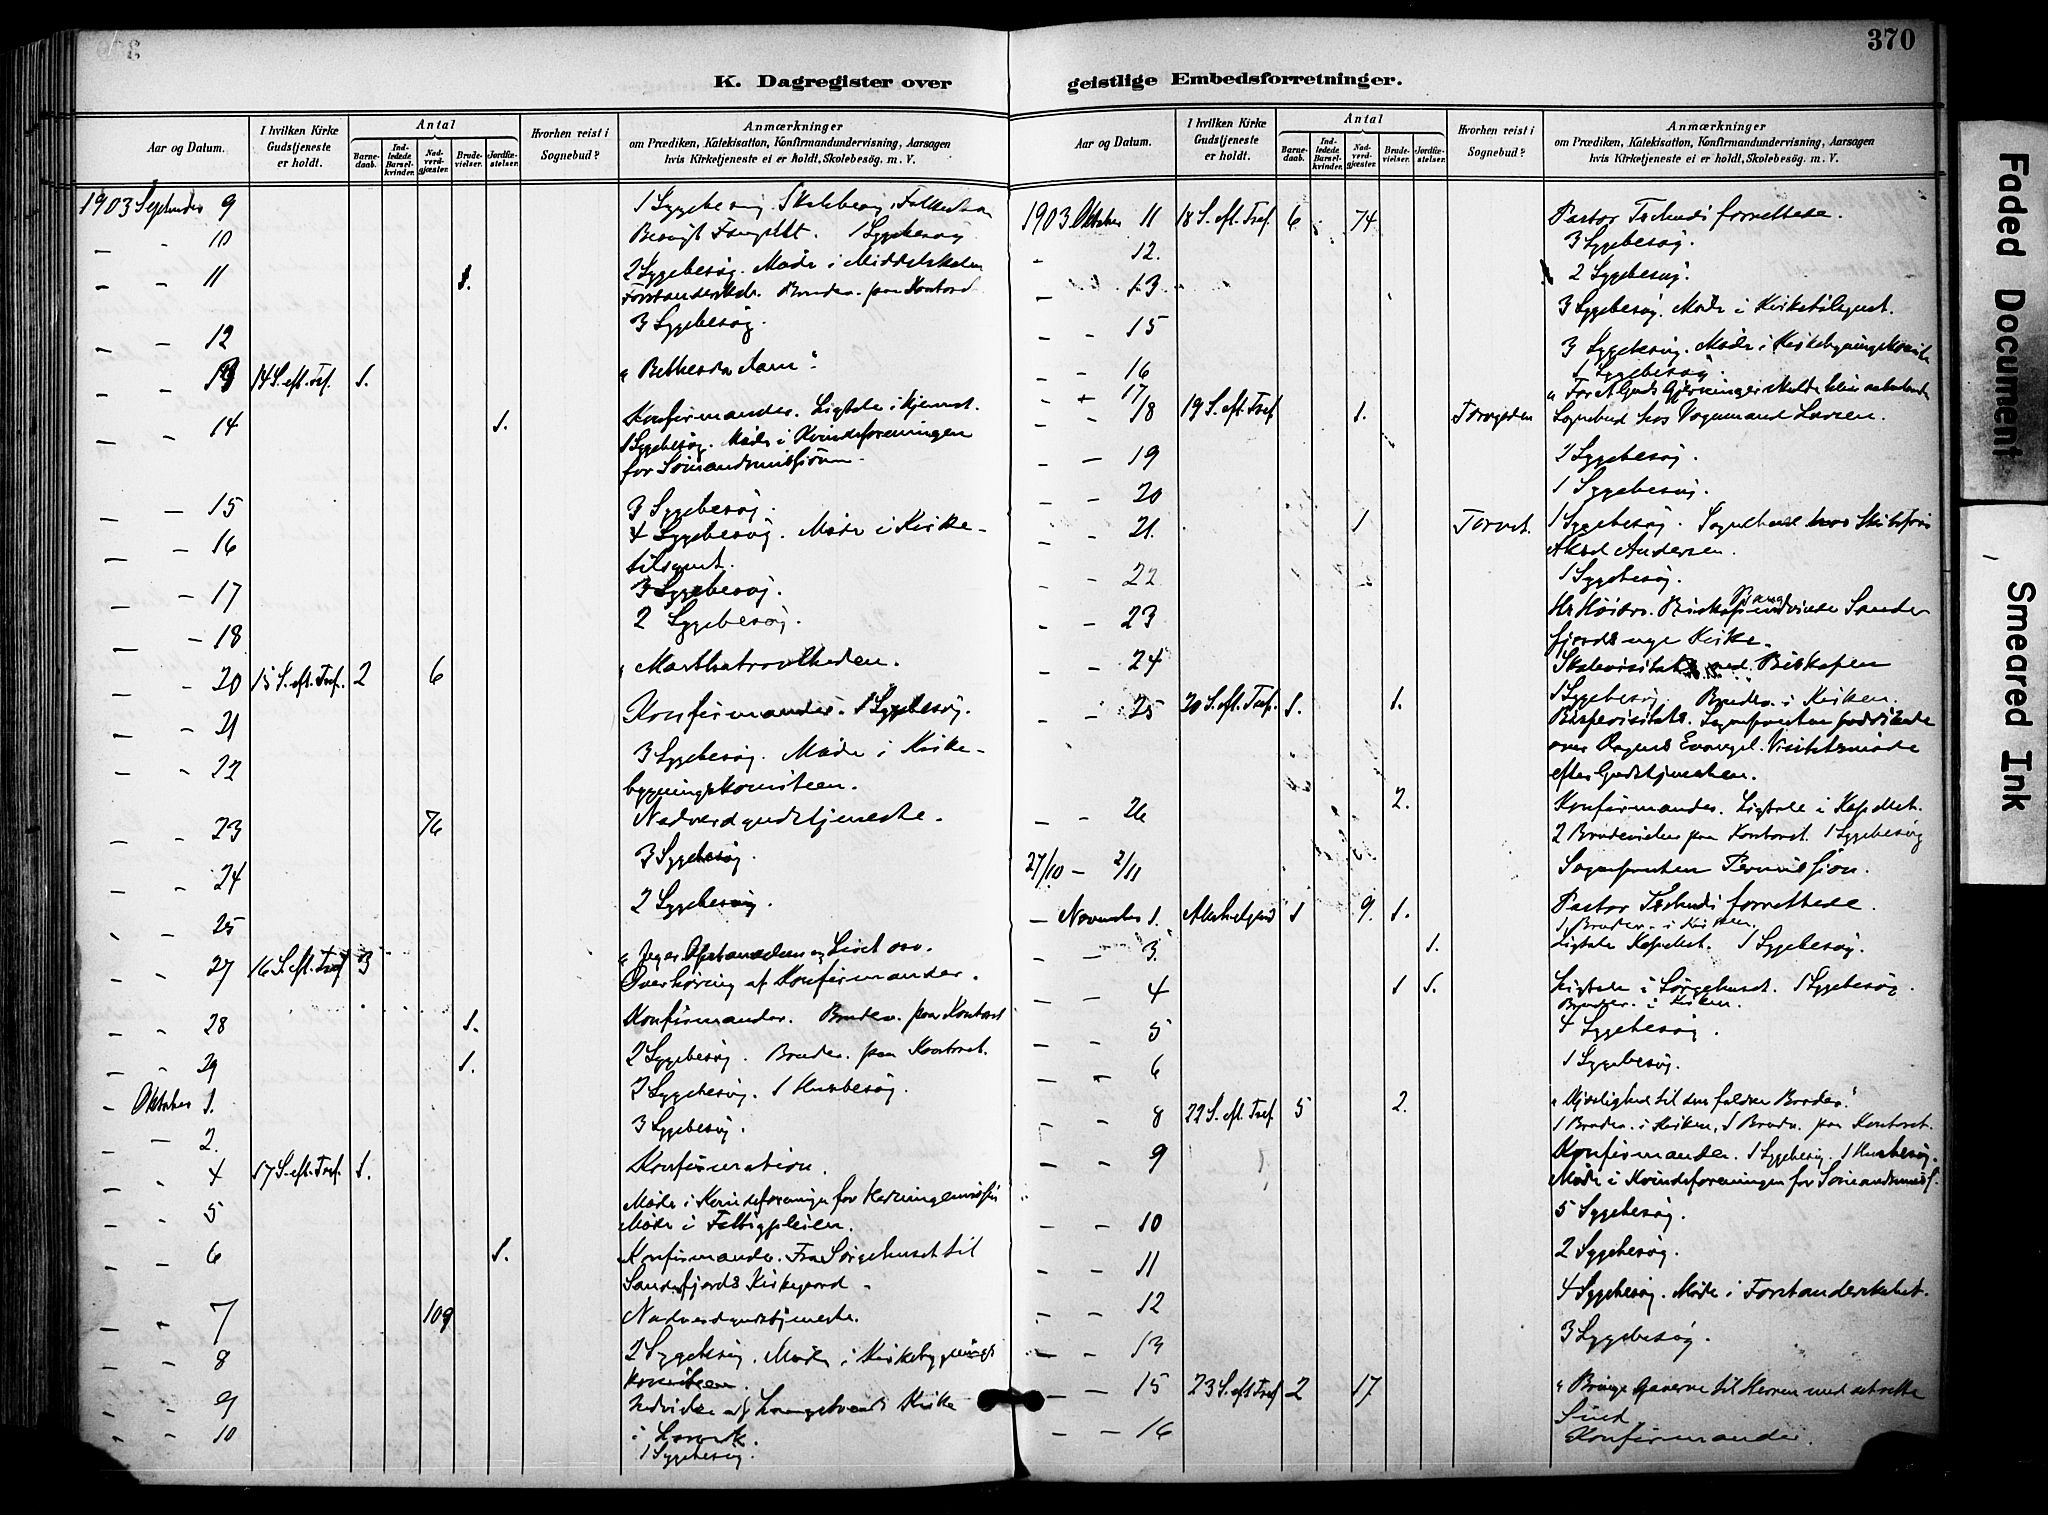 370
K. Dagregister over
geistlige Embedsforretninger.
Aar og Datum.
I hvilken Kirke Gudstjeneste er holdt.
Antal
Barnedaab.
Indledede Barselkvinder.
Nadverdgjæster.
Brudevielser.
Jordfæstelser.
Hvorhen reist i Sognebud?
Anmærkninger
om Prædiken, Katekisation, Konfirmandundervisning, Aarsagen
hvis Kirketjeneste ei er holdt, Skolebesøg. m. V.
1903 September 9 1 Sygebesøg. Skolebesøg i
— — 10 Besøgt 1 Sygebesøg
— — 11 1. 2 Sygebesøg. Møde i Middelskolen
Forstandersk. Brudev. paa Kontoret
— — 12 3 Sygebesøg.
— — 13 14 S. eft. Tref. 1. "Bethesda dam".
— — 14 1. Konfirmander. Ligtale i Hjemmet.
1 Sygebesøg. Møde i Kvindeforeningen
for Sømandsmissionen.
— — 15 3 Sygebesøg.
— — 16 4 Sygebesøg. Møde i Kirke-
tilsynet.
— — 17 3 Sygebesøg.
— — 18 2 Sygebesøg.
— — 20 15 S. eft. Tref. 2 6
— — 21 Konfirmander. 1 Sygebesøg.
— — 22 3 Sygebesøg. Møde i Kirke-
bygningskomiteen.
— — 23 76 Nadverdgudstjeneste.
— — 24 3 Sygebesøg.
— — 25 2 Sygebesøg.
— — 27 16 S. eft. Tref. 3 "Jeg er Opstandelsen og Livet osv.
Overhøring af Konfirmander.
— — 28 1. Konfirmander. Brudev. paa Kontoret
— — 29 1. 2 Sygebesøg. Brudev. paa Kontoret.
— Oktober 1. 2 Sygebesøg. 1 Husbesøg.
— 2. 3 Sygebesøg.
— — 4 17 S. eft. Tref. 1. Konfirmation.
— — 5 Møde i Kvindeforeningen for
Møde i Fattigpleien.
— — 6 1. Konfirmander. Fra Sørgehuset til
Sandefjords Kirkegaard.
— — 7 109 Nadverdgudstjeneste.
— — 8 2 Sygebesøg. Møde i Kirkebygnings
komiteen.
— — 9 Indvielse af Langestrands Kirke
i Larvik.
— — 10 1 Sygebesøg.
Aar og Datum.
I hvilken Kirke Gudstjeneste er holdt.
Antal
Barnedaab.
Indledede Barselkvinder.
Nadverdgjæster.
Brudevielser.
Jordfæstelser.
Hvorhen reist i Sognebud?
Anmærkninger
om Prædiken, Katekisation, Konfirmandundervisning, Aarsagen
hvis Kirketjeneste ei er holdt, Skolebesøg. m. V.
1903 Oktober 11 18 S. eft. Tref. 6 74 Pastor Tschudi forrettede.
— 12. 3 Sygebesøg.
— — 13 2 Sygebesøg.
— — 15 3 Sygebesøg. Møde i Kirketilsynet.
— — 16 3 Sygebesøg. Møde i Kirkebygningskomite
— — 17 1 Sygebesøg.
— — 18 19 S. eft. Tref. 1. Torvgaden "For at Guds Gjerninger skulde blive
Sognebud hos Vognmand Larsen.
— — 19 2 Sygebesøg.
— — 20 1 Sygebesøg.
— — 21. 1 Torvet. 1 Sygebesøg. Sognebud hos
Andersen.
— — 22 1 Sygebesøg.
— — 23 Biskop Bang indviede Sande-
fjords nye Kirke.
— — 24 Skolevisitats ved Biskopen
— — 25 20 S. eft. Tref. 1. 1. 1 Sygebesøg. Brudev. i Kirken.
Bispevisitats. Sognepresten prædikede
over Dagens Evangel. Visitatsmøde
efter Gudstjenesten.
— — 26 2. Konfirmander. Ligtale i Kapellet.
2 Brudevielser paa Kontoret. 1 Sygebesøg
27/10 — 2/11 Sognepresten Permission.
— November 1. Allehelgend 1 9. 1. Pastor Tschudi forrettede.
1 Brudev. i Kirken.
— — 3. 1. Ligtale Kapellet. 1 Sygebesøg.
— — 4 1 1. Ligtale i Sørgehuset. 1 Sygebesøg.
Brudev. i Kirken.
— — 5 4 Sygebesøg.
— — 6 1 Sygebesøg.
— — 8 22 S. eft. Tref. 5 2. "Kjærlighed til den faldne Broder".
1 Brudev. i Kirken, 1 Brudev. paa Kontoret.
— — 9 Konfirmander. 1 Sygebesøg. 1 Husbesøg.
Møde i Kvindeforeningen for Sømandsmiss.
— — 10 5 Sygebesøg.
— — 11 2 Sygebesøg.
— — 12 4 Sygebesøg. Møde i Forstanderskabet.
— — 13 3 Sygebesøg.
— — 15 23 S. eft Tref 2 17 "Bringe Gaverne til Herren med det rette
Sind
— — 16 Konfirmander.
Faded Document
Smeared Ink